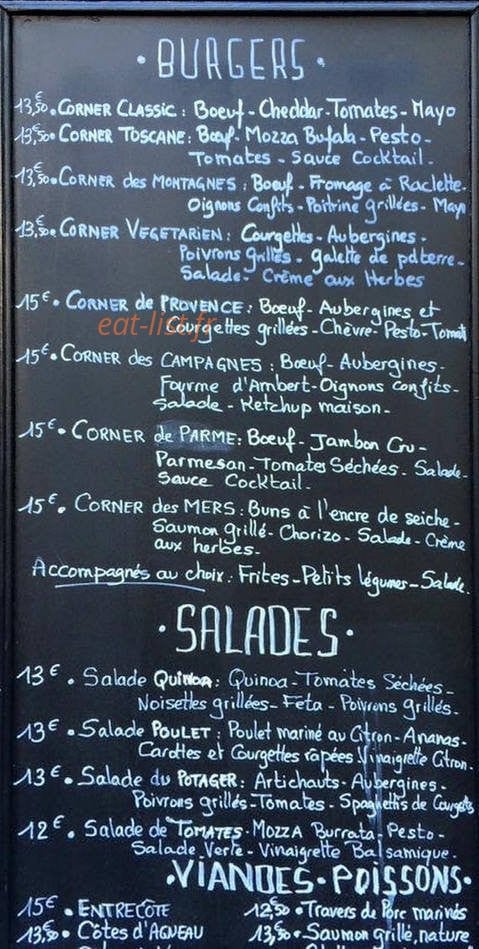 · BURGERS ·
13,50€ • CORNER CLASSIC : Boeuf - Cheddar - Tomates - Mayo
13,50€ • CORNER TOSCANE : Boeuf - Mozza Bufala - Pesto -
Tomates - Sauce Cocktail -
13,50€ • CORNER des MONTAGNES : Boeuf - Fromage à Raclette -
Oignons Confits - Poitrine grillées - Mayo
13,50€ • CORNER VEGETARIEN : Courgettes - Aubergines -
Poivrons grillés - galette de pdterre -
Salade - Crème aux Herbes
15€ • CORNER de PROVENCE : Boeuf - Aubergines et
eat-list.fr
Courgettes grillées - Chèvre - Pesto - Tomat
15€ • CORNER des CAMPAGNES : Boeuf - Aubergines -
Fourme d'Ambert - Oignons confits -
Salade - Ketchup maison -
15€ • CORNER de PARME : Boeuf - Jambon Cru -
Parmesan - Tomates Séchées - Salade -
Sauce Cocktail -
15€ • CORNER des MERS : Buns à l'encre de seiche -
Saumon grillé - Chorizo - Salade - Crème
aux herbes -
Accompagnés au choix : Frites - Petits légumes - Salade.
· SALADES ·
13€ • Salade QUINOA : Quinoa - Tomates Séchées -
Noisettes grillées - Feta - Poivrons grillés -
13€ • Salade POULET : Poulet mariné au Citron - Ananas -
Carottes et Courgettes râpées Vinaigrette Citron -
13€ • Salade du POTAGER : Artichauts - Aubergines -
Poivrons grillés - Tomates - Spaghettis de Courgettes
12€ • Salade de TOMATES - MOZZA Burrata - Pesto -
Salade Verte - Vinaigrette Balsamique -
• VIANDES - POISSONS •
15€ • ENTRECÔTE 12,50€ • Travers de Porc marinés
13,50€ • Côtes d'AGNEAU 13,50€ • Saumon grillé nature